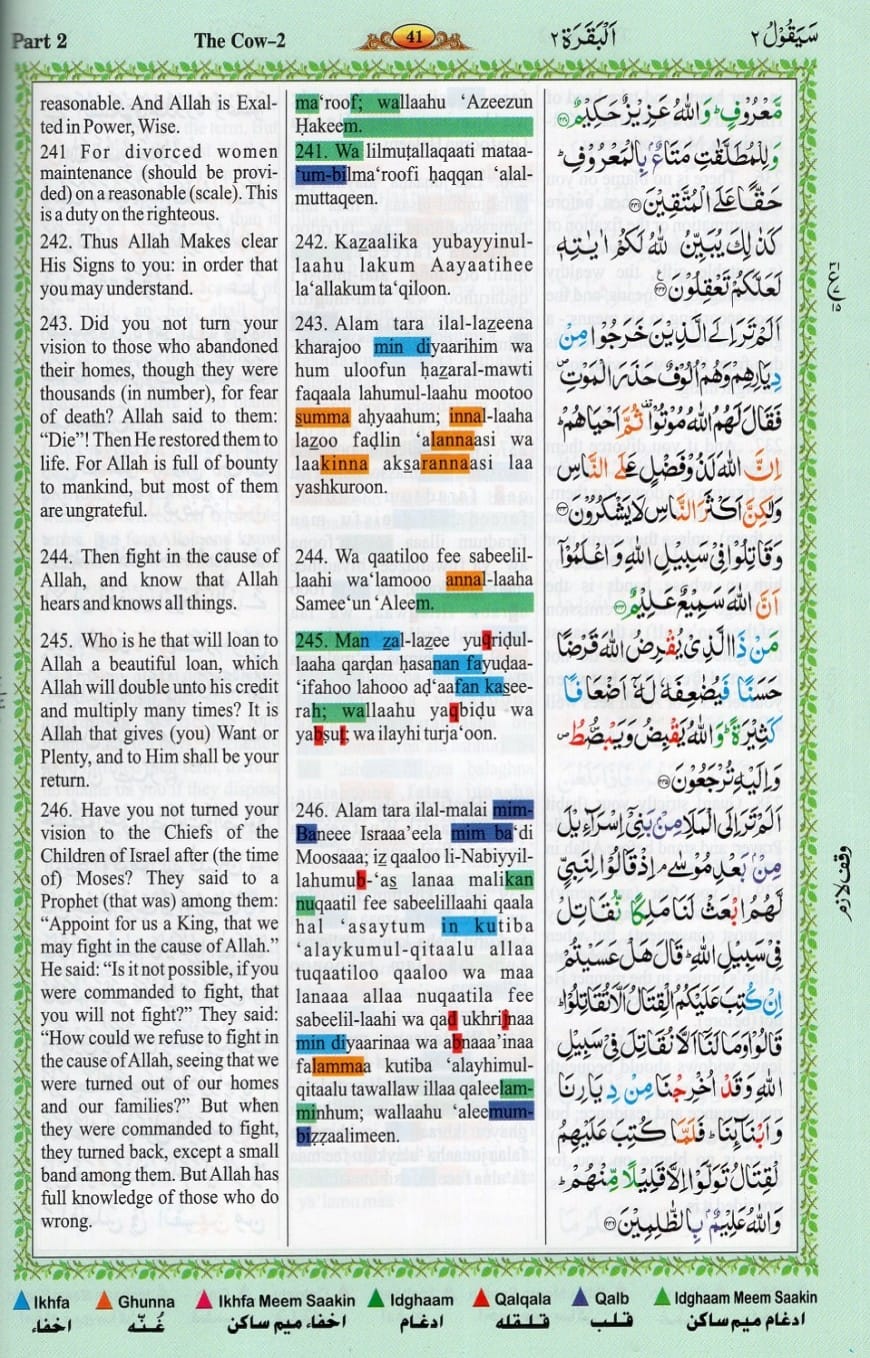 Part 2
The Cow–2
41
اَلْبَقَرَة ٢
سَيَقُوْلُ ٢
reasonable. And Allah is Exal-
ted in Power, Wise.
241 For divorced women
maintenance (should be provi-
ded) on a reasonable (scale). This
is a duty on the righteous.
242. Thus Allah Makes clear
His Signs to you: in order that
you may understand.
243. Did you not turn your
vision to those who abandoned
their homes, though they were
thousands (in number), for fear
of death? Allah said to them:
“Die”! Then He restored them to
life. For Allah is full of bounty
to mankind, but most of them
are ungrateful.
244. Then fight in the cause of
Allah, and know that Allah
hears and knows all things.
245. Who is he that will loan to
Allah a beautiful loan, which
Allah will double unto his credit
and multiply many times? It is
Allah that gives (you) Want or
Plenty, and to Him shall be your
return.
246. Have you not turned your
vision to the Chiefs of the
Children of Israel after (the time
of) Moses? They said to a
Prophet (that was) among them:
“Appoint for us a King, that we
may fight in the cause of Allah.”
He said: “Is it not possible, if you
were commanded to fight, that
you will not fight?” They said:
“How could we refuse to fight in
the cause of Allah, seeing that we
were turned out of our homes
and our families?” But when
they were commanded to fight,
they turned back, except a small
band among them. But Allah has
full knowledge of those who do
wrong.
ma‘roof; wallaahu ‘Azeezun
Ḥakeem.
241. Wa lilmuṭallaqaati mataa-
‘um-bilma‘roofi ḥaqqan ‘alal-
muttaqeen.
242. Kazaalika yubayyinul-
laahu lakum Aayaatihee
la‘allakum ta‘qiloon.
243. Alam tara ilal-lazeena
kharajoo min diyaarihim wa
hum uloofun ḥazaral-mawti
faqaala lahumul-laahu mootoo
summa aḥyaahum; innal-laaha
lazoo faḍlin ‘alannaasi wa
laakinna aksarannaasi laa
yashkuroon.
244. Wa qaatiloo fee sabeelil-
laahi wa‘lamooo annal-laaha
Samee‘un ‘Aleem.
245. Man zal-lazee yuqriḍul-
laaha qarḍan ḥasanan fayuḍaa-
‘ifahoo lahooo aḍ‘aafan kasee-
rah; wallaahu yaqbiḍu wa
yabsuṭ; wa ilayhi turja‘oon.
246. Alam tara ilal-malai mim-
Baneee Israaa’eela mim ba‘di
Moosaaa; iz qaaloo li-Nabiyyil-
lahumub-‘as lanaa malikan
nuqaatil fee sabeelillaahi qaala
hal ‘asaytum in kutiba
‘alaykumul-qitaalu allaa
tuqaatiloo qaaloo wa maa
lanaaa allaa nuqaatila fee
sabeelil-laahi wa qad ukhrijnaa
min diyaarinaa wa abnaaa’inaa
falammaa kutiba ‘alayhimul-
qitaalu tawallaw illaa qaleelam-
minhum; wallaahu ‘aleemum-
bizzaalimeen.
مَّعْرُوْفٍ ؕ وَاللّٰهُ عَزِيْزٌ حَكِيْمٌ ۝۲۴۰
وَلِلْمُطَلَّقٰتِ مَتَاعٌۢ بِالْمَعْرُوْفِ ؕ
حَقًّا عَلَى الْمُتَّقِيْنَ ۝۲۴۱
كَذٰلِكَ يُبَيِّنُ اللّٰهُ لَكُمْ اٰيٰتِهٖ
لَعَلَّكُمْ تَعْقِلُوْنَ ۝۲۴۲
اَلَمْ تَرَ اِلَى الَّذِيْنَ خَرَجُوْا مِنْ
دِيَارِهِمْ وَهُمْ اُلُوْفٌ حَذَرَ الْمَوْتِ ۪
فَقَالَ لَهُمُ اللّٰهُ مُوْتُوْا ۫ ثُمَّ اَحْيَاهُمْ ؕ
اِنَّ اللّٰهَ لَذُوْ فَضْلٍ عَلَى النَّاسِ
وَلٰكِنَّ اَكْثَرَ النَّاسِ لَا يَشْكُرُوْنَ ۝۲۴۳
وَقَاتِلُوْا فِيْ سَبِيْلِ اللّٰهِ وَاعْلَمُوْٓا
اَنَّ اللّٰهَ سَمِيْعٌ عَلِيْمٌ ۝۲۴۴
مَنْ ذَا الَّذِيْ يُقْرِضُ اللّٰهَ قَرْضًا
حَسَنًا فَيُضٰعِفَهٗ لَهٗٓ اَضْعَافًا
كَثِيْرَةً ؕ وَاللّٰهُ يَقْبِضُ وَيَبْصُۜطُ ۪
وَاِلَيْهِ تُرْجَعُوْنَ ۝۲۴۵
اَلَمْ تَرَ اِلَى الْمَلَاِ مِنْۢ بَنِيْٓ اِسْرَآءِيْلَ
مِنْۢ بَعْدِ مُوْسٰى ۘ اِذْ قَالُوْا لِنَبِيٍّ
لَّهُمُ ابْعَثْ لَنَا مَلِكًا نُّقَاتِلْ
فِيْ سَبِيْلِ اللّٰهِ ؕ قَالَ هَلْ عَسَيْتُمْ
اِنْ كُتِبَ عَلَيْكُمُ الْقِتَالُ اَلَّا تُقَاتِلُوْا ؕ
قَالُوْا وَمَا لَنَآ اَلَّا نُقَاتِلَ فِيْ سَبِيْلِ
اللّٰهِ وَقَدْ اُخْرِجْنَا مِنْ دِيَارِنَا
وَاَبْنَآئِنَا ؕ فَلَمَّا كُتِبَ عَلَيْهِمُ
الْقِتَالُ تَوَلَّوْا اِلَّا قَلِيْلًا مِّنْهُمْ ؕ
وَاللّٰهُ عَلِيْمٌۢ بِالظّٰلِمِيْنَ ۝۲۴۶
وقف لازم
Ikhfa
Ghunna
Ikhfa Meem Saakin
Idghaam
Qalqala
Qalb
Idghaam Meem Saakin
اخفاء
غُنّه
اخفاء میم ساکن
ادغام
قلقله
قلب
ادغام میم ساکن